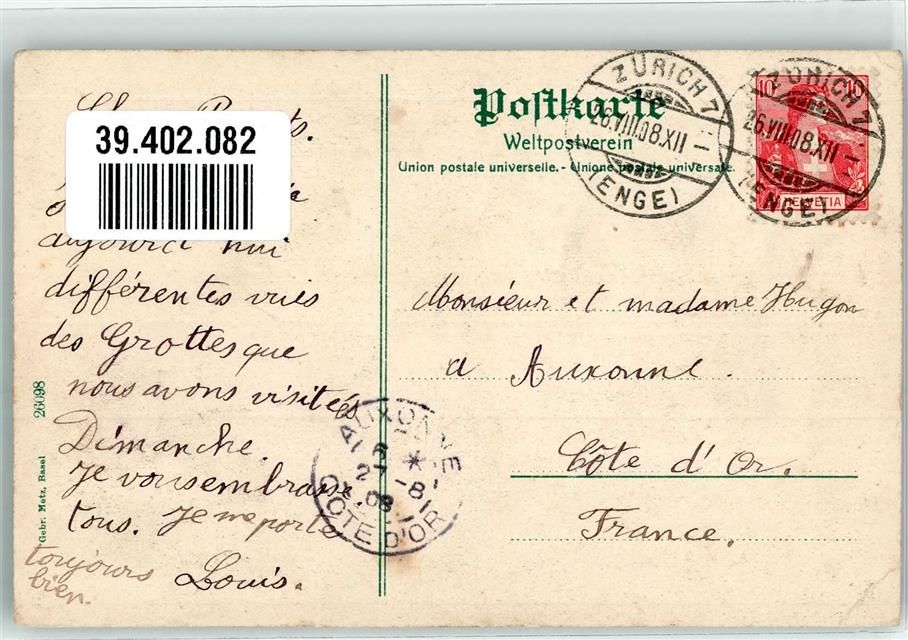 39.402.082
aujourd'hui
différentes vues
des Grottes que
nous avons visités
Dimanche.
Je vous embrasse
tous. Je me porte
toujours
bien.
Louis.
Gebr. Metz, Basel 26098
Postkarte
Weltpostverein
Union postale universelle. - Unione postale universale.
ZÜRICH 7
26.VIII.08.XII
(ENGE)
ZÜRICH 7
26.VIII.08.XII
(ENGE)
10 10
HELVETIA
Monsieur et madame Hugon
a Auxonne.
Côte d'Or.
France.
AUXONNE
27 -8
08
COTE D'OR